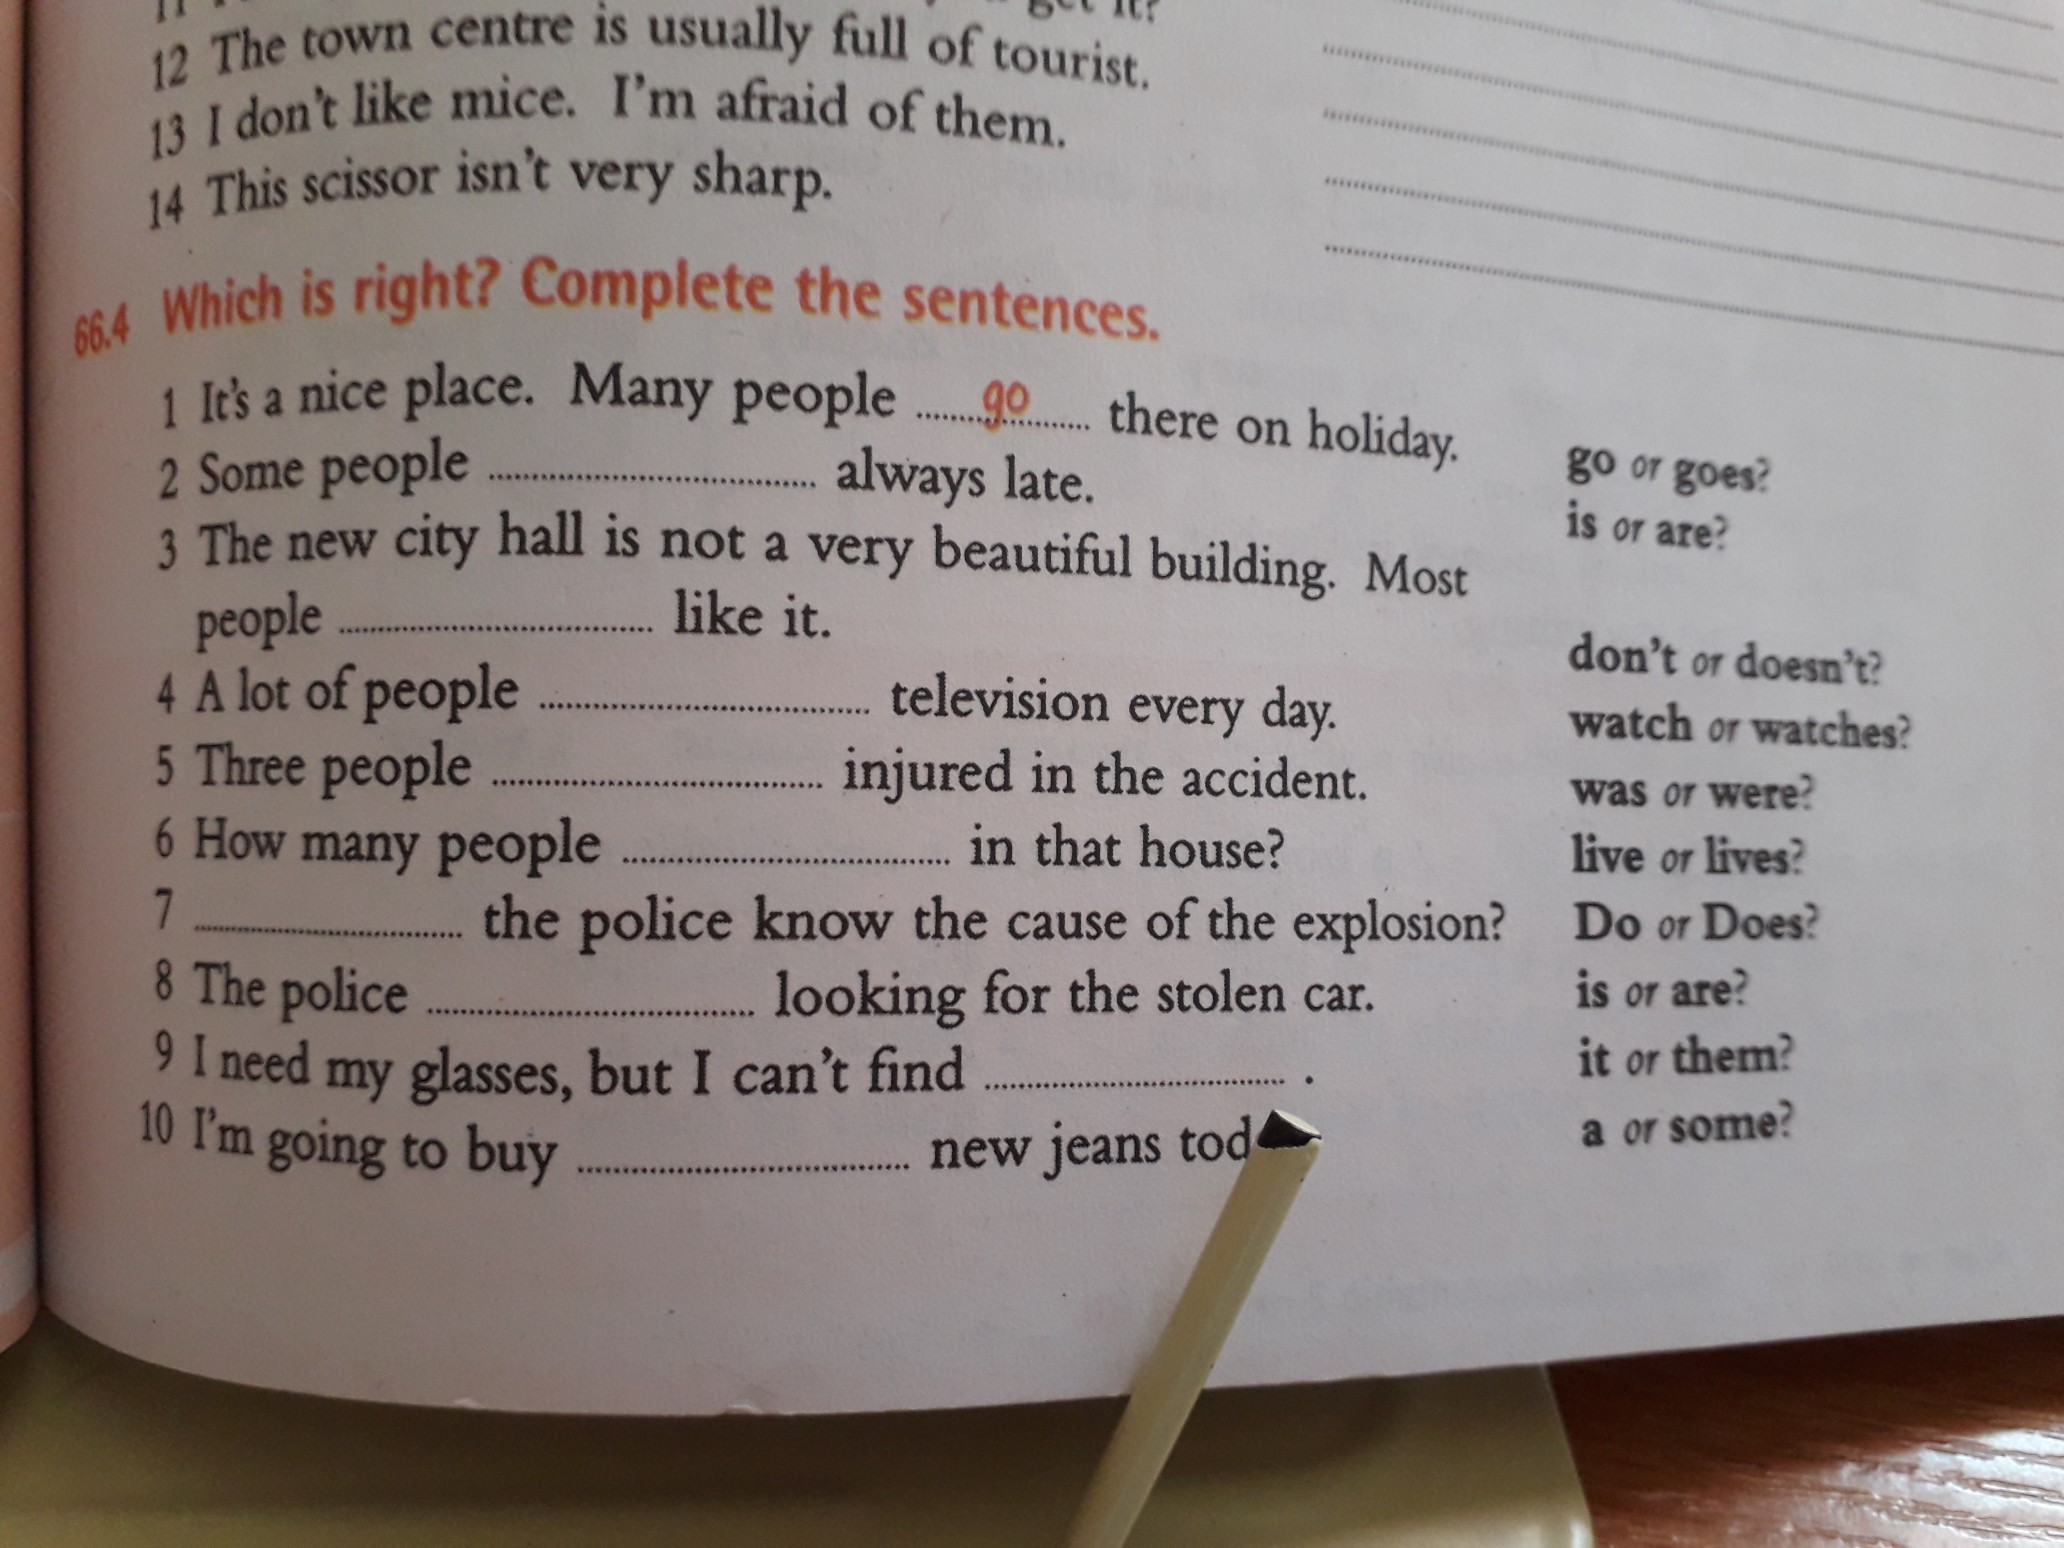 get it?
12 The town centre is usually full of tourist.
13 I don't like mice. I'm afraid of them.
14 This scissor isn't very sharp.
66.4 Which is right? Complete the sentences.
1 It's a nice place. Many people ........go........ there on holiday. go or goes?
2 Some people ................ always late. is or are?
3 The new city hall is not a very beautiful building. Most
people ................ like it. don't or doesn't?
4 A lot of people ................ television every day. watch or watches?
5 Three people ................ injured in the accident. was or were?
6 How many people ................ in that house? live or lives?
7 ................ the police know the cause of the explosion? Do or Does?
8 The police ................ looking for the stolen car. is or are?
9 I need my glasses, but I can't find ................ . it or them?
10 I'm going to buy ................ new jeans tod a or some?